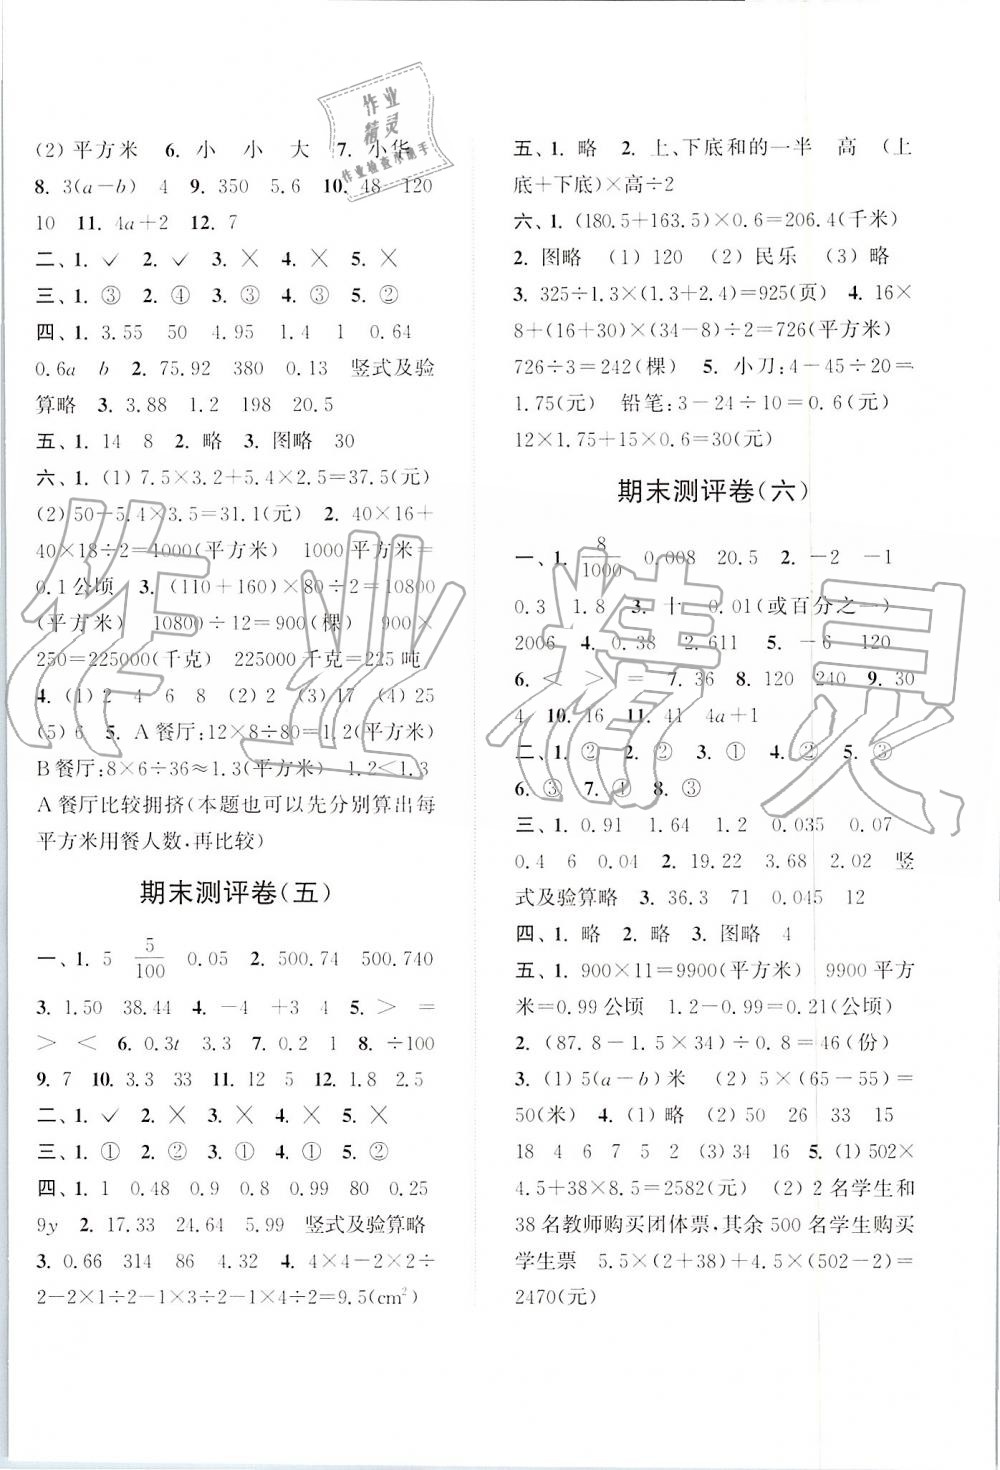 作业
精灵
作业检查小助手
(2) 平方米 6. 小 小 大 7. 小华
8. 3(a－b) 4 9. 350 5.6 10. 48 120
10 11. 4a＋2 12. 7
二、1. ✓ 2. ✓ 3. ╳ 4. ╳ 5. ╳
三、1. ③ 2. ④ 3. ③ 4. ③ 5. ②
四、1. 3.55 50 4.95 1.4 1 0.64
0.6a b 2. 75.92 380 0.13 竖式及验
算略 3. 3.88 1.2 198 20.5
五、1. 14 8 2. 略 3. 图略 30
六、1. (1) 7.5×3.2＋5.4×2.5＝37.5(元)
(2)50－5.4×3.5＝31.1(元) 2. 40×16＋
40×18÷2＝1000(平方米) 1000平方米＝
0.1公顷 3. (110＋160)×80÷2＝10800
(平方米) 10800÷12＝900(棵) 900×
250＝225000(千克) 225000千克＝225吨
4. (1) 2 4 6 8 (2) 2 (3) 17 (4) 25
(5) 6 5. A餐厅:12×8÷80＝1.2(平方米)
B餐厅:8×6÷36≈1.3(平方米) 1.2＜1.3
A餐厅比较拥挤(本题也可以先分别算出每
平方米用餐人数,再比较)
期末测评卷(五)
一、1. 5 5/100 0.05 2. 500.74 500.740
3. 1.50 38.44 4. －4 ＋3 4 5. ＞ ＝
＞ ＜ 6. 0.3t 3.3 7. 0.2 1 8. ÷100
9. 7 10. 3.3 33 11. 12 5 12. 1.8 2.5
二、1. ✓ 2. ╳ 3. ╳ 4. ╳ 5. ╳
三、1. ① 2. ② 3. ① 4. ① 5. ②
四、1. 1 0.48 0.9 0.8 0.99 80 0.25
9y 2. 17.33 24.64 5.99 竖式及验算略
3. 0.66 314 86 32 4. 4×4－2×2÷
2－2×1÷2－1×3÷2－1×4÷2＝9.5(cm²)
五、1. 略 2. 上、下底和的一半 高 (上
底＋下底)×高÷2
六、1. (180.5＋163.5)×0.6＝206.4(千米)
2. 图略 (1) 120 (2) 民乐 (3) 略
3. 325÷1.3×(1.3＋2.4)＝925(页) 4. 16×
8＋(16＋30)×(34－8)÷2＝726(平方米)
726÷3＝242(棵) 5. 小刀:4－45÷20＝
1.75(元) 铅笔:3－24÷10＝0.6(元)
12×1.75＋15×0.6＝30(元)
期末测评卷(六)
一、1. 8/1000 0.008 20.5 2. －2 －1
0.3 1.8 3. 十 0.01(或百分之一)
2006 4. 0.38 2.611 5. －6 120
6. ＜ ＞ ＝ 7. 36 8. 120 240 9. 30
4 10. 16 11. 41 4a＋1
二、1. ② 2. ② 3. ① 4. ② 5. ③
6. ③ 7. ① 8. ③
三、1. 0.91 1.64 1.2 0.035 0.07
0.4 6 0.04 2. 19.22 3.68 2.02 竖
式及验算略 3. 36.3 71 0.045 12
四、1. 略 2. 略 3. 图略 4
五、1. 900×11＝9900(平方米) 9900平方
米＝0.99公顷 1.2－0.99＝0.21(公顷)
2. (87.8－1.5×34)÷0.8＝46(份)
3. (1) 5(a－b)米 (2) 5×(65－55)＝
50(米) 4. (1) 略 (2) 50 26 33 15
18 4 6 7 5 2 (3) 34 16 5. (1) 502×
4.5＋38×8.5＝2582(元) (2) 2名学生和
38名教师购买团体票,其余500名学生购买
学生票 5.5×(2＋38)＋4.5×(502－2)＝
2470(元)
作业精灵